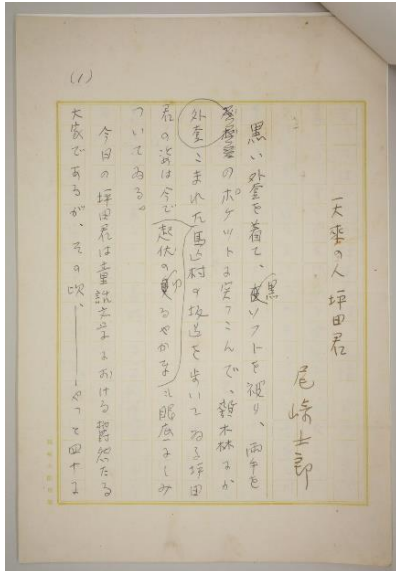 (1)
天來の人 坪田君
尾崎士郎
黒い外套を着て、黒ソフトを被り、両手を
外套のポケットに突つこんで、雑木林にか
こまれた馬込村の坂道を歩いてゐる坪田
君の姿は今で起伏のゆるやかなも眼底にしみ
ついてゐる。
今日の坪田君は童話文学における鬱然たる
大家であるが、その頃、――やつと四十に